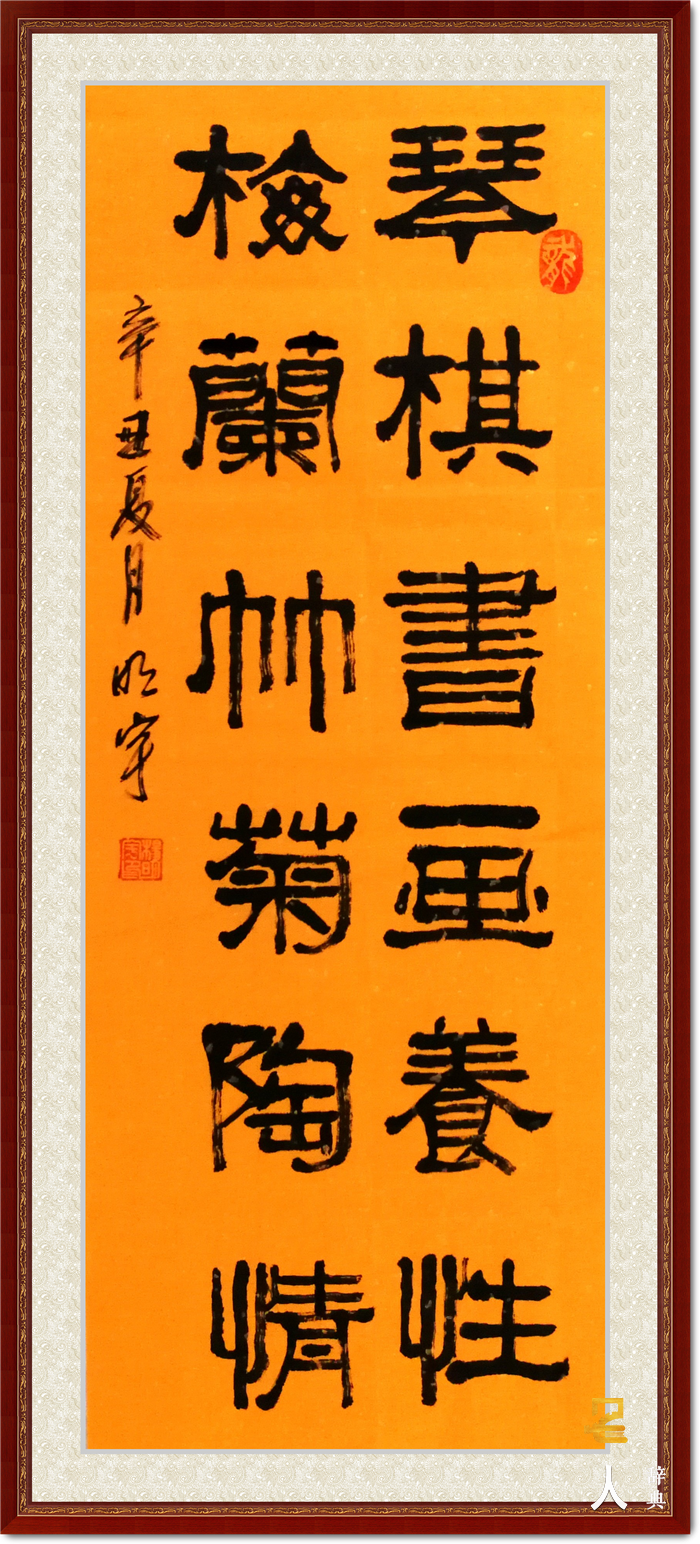 琴棋書画養性
梅蘭竹菊陶情
辛丑夏月 明宇
人
辞典